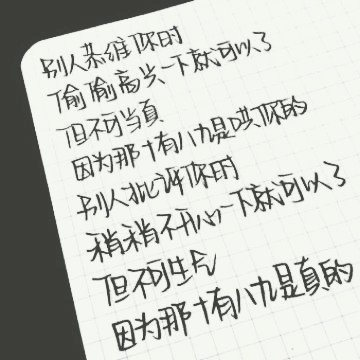 别人恭维你时
偷偷高兴一下就可以了
但不可当真
因为那十有八九是哄你的
别人批评你时
稍稍不开心一下就可以了
但不可生气
因为那十有八九是真的